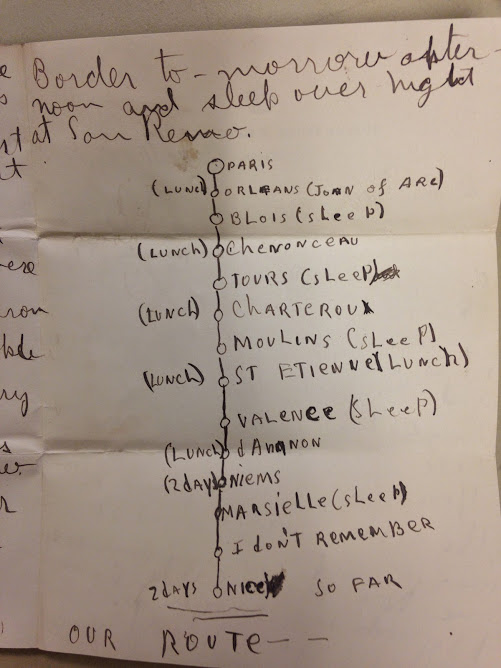 Border to-morrow after-
noon and sleep over night
at San Remo.
PARIS
(LUNCH) ORLEANS (JOAN of ARC)
BLOIS (SLEEP)
(LUNCH) CHENONCEAU
TOURS (SLEEP)
(LUNCH) CHARTEROUX
MOULINS (SLEEP)
(LUNCH) ST ETIENNE (LUNCH)
VALENCE (SLEEP)
(LUNCH)
(2 dAYS) NIEMS
MARSIELLE (SLEEP)
I dON'T REMEMBER
2 dAYS NICE SO FAR
OUR ROUTE--